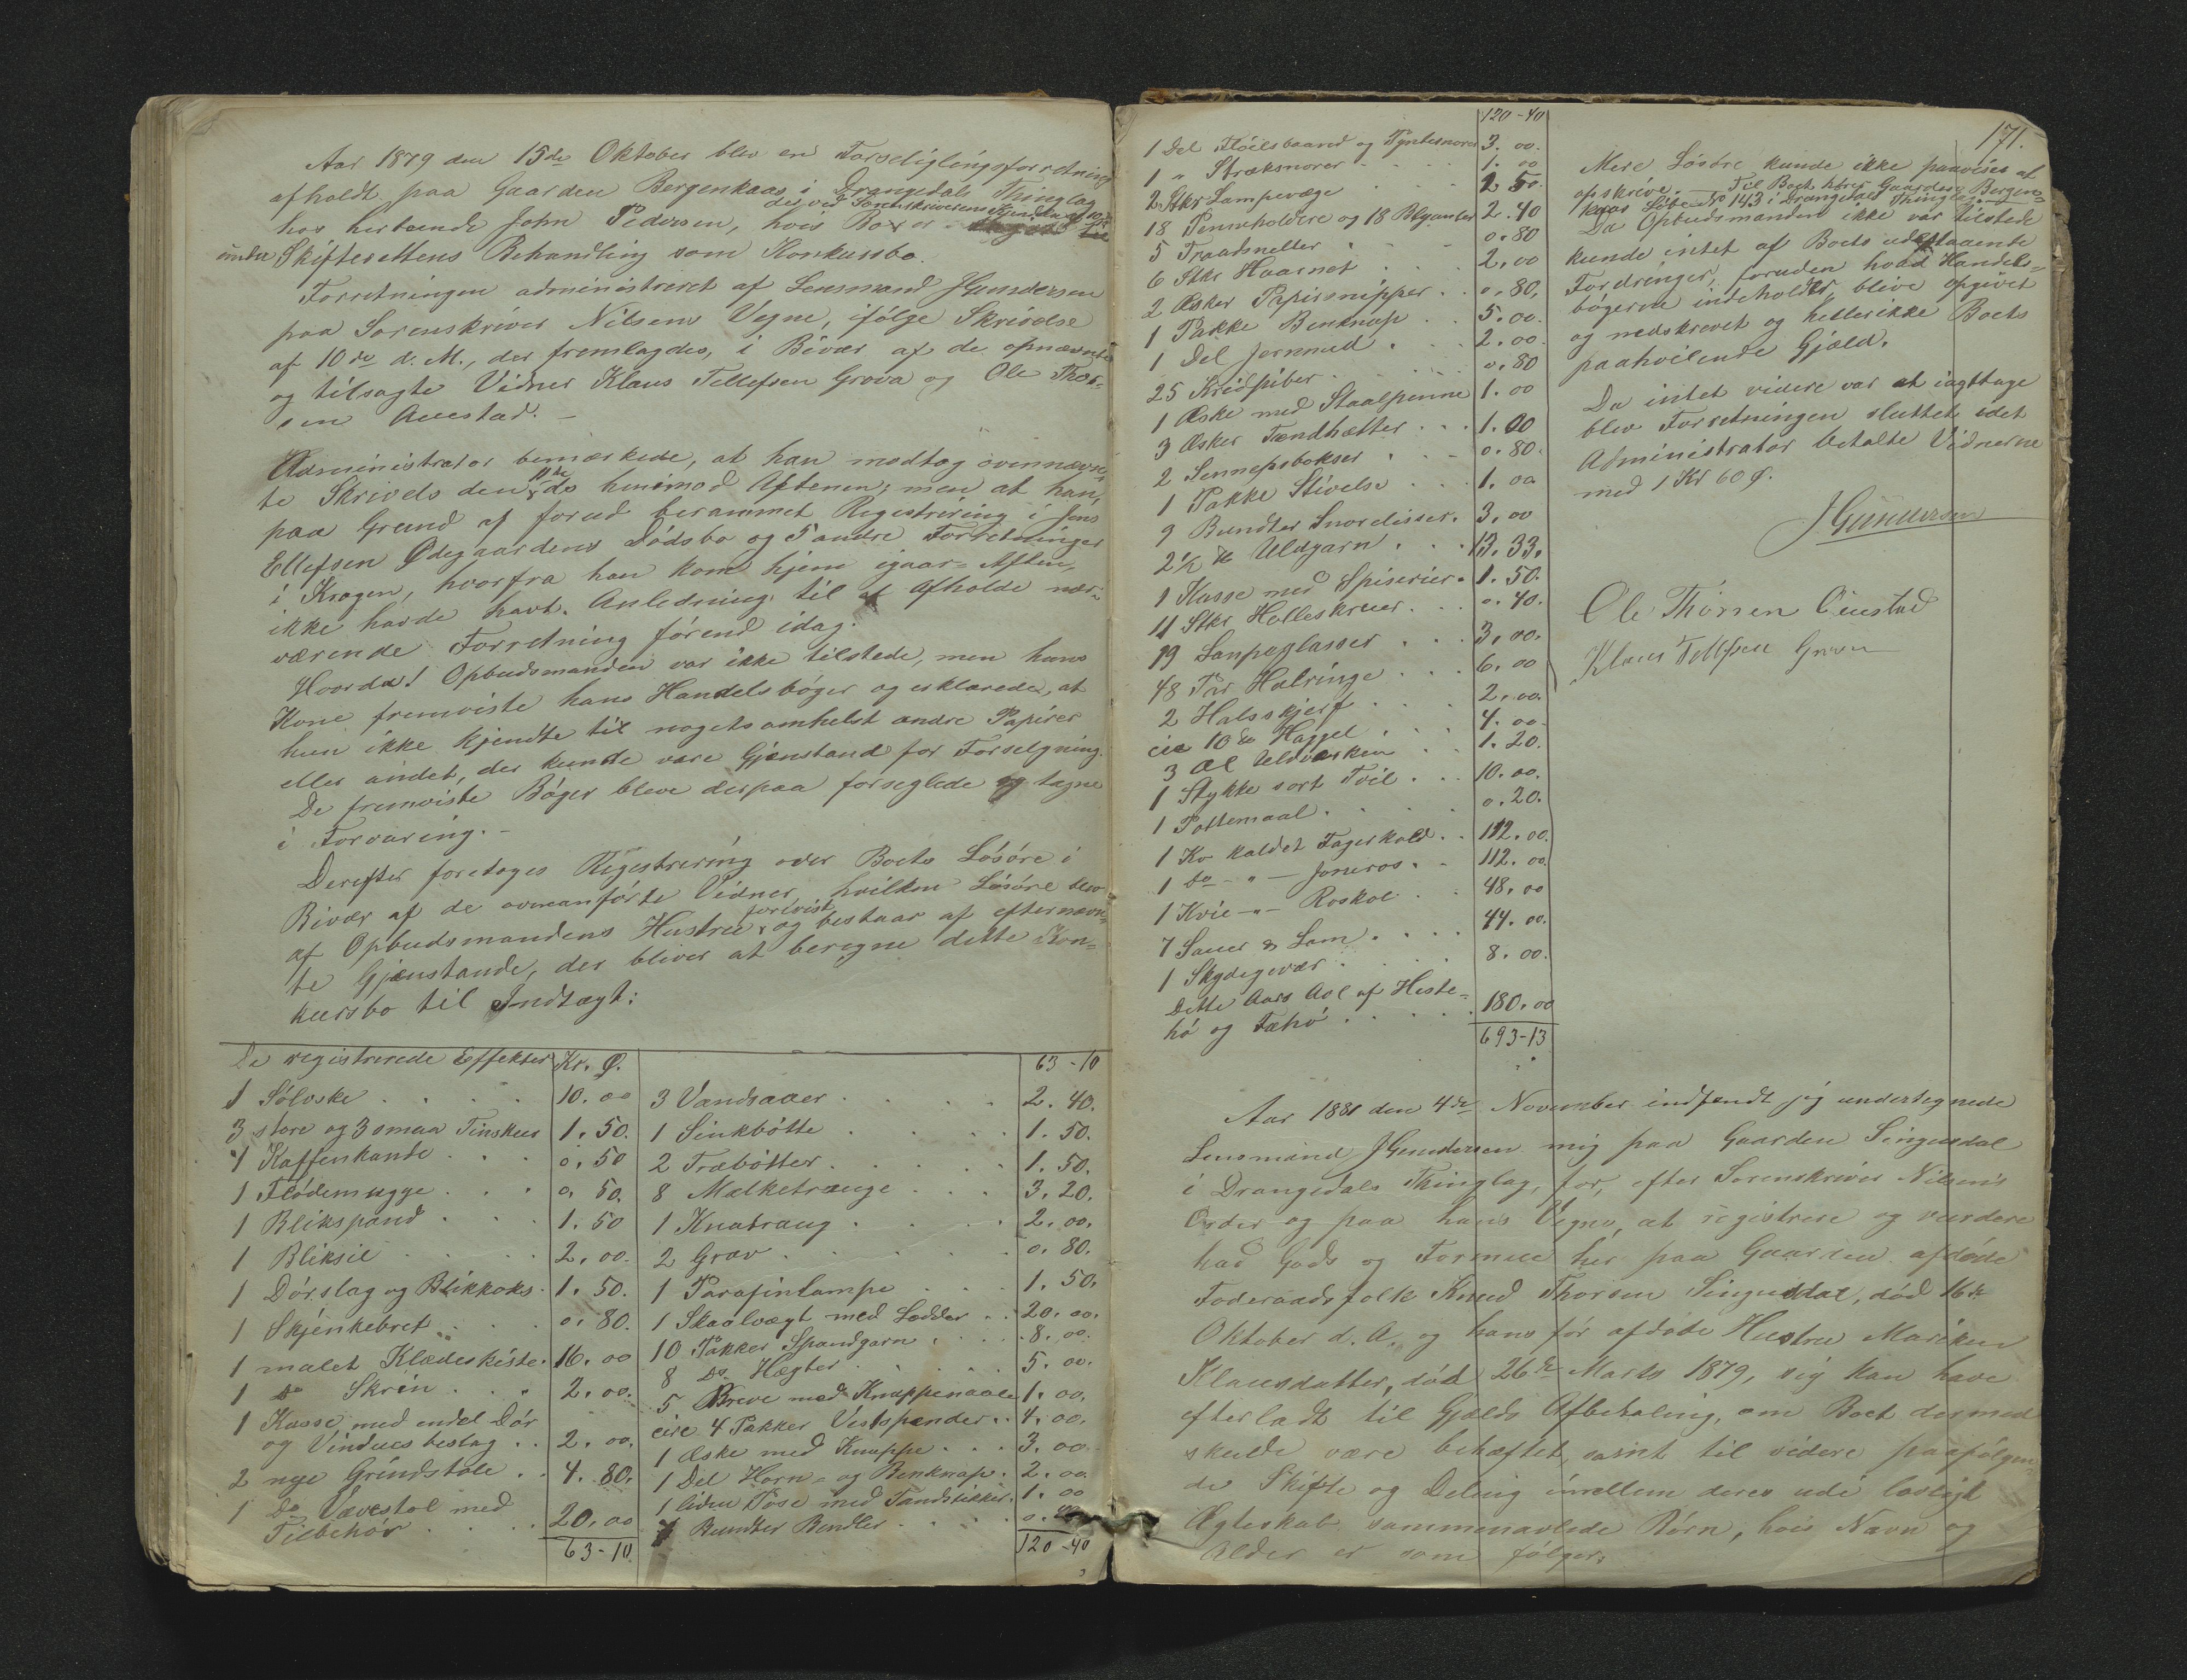 Aar 1879 den 15de Oktober blev en Forseiglingsforretning
afholdt paa Gaarden Bergenkaas i Drangedals Thinglag
der ved Sorenskriverens Kjendelse af 10de
hos herboende John Pedersen, hvis Bo er
under Skifterettens Behandling som Konkursbo.
Forretningen administreret af Lensmand JGundersen
paa Sorenskriver Nilsens Vegne, ifølge Skrivelse
af 10de d. M., der fremlagdes, i Bivær af de opnævnte
og tilsagte Vidner Klaus Tellefsen Grova og Ole Thor-
sen Auestad. —
Administrator bemærkede, at han modtog ovennævn-
te Skrivels den 11te ds henimod Aftenen; men at han,
paa Grund af forud berammet Registrering i Jens
Ellefsen Ødegaardens Dødsbo og 5 andre Forretninger
i Krogen, hvorfra han kom hjem igaar-Aften,
ikke havde havt Anledning til at afholde nær-
værende Forretning førend idag.
Hvorda! Opbudsmanden var ikke tilstede, men hans
Kone fremviste hans Handelsbøger og erklærede, at
hun ikke kjendte til nogetsomhelst andre Papirer
eller andet, der kunde være Gjenstand for Forselgning.
De fremviste Bøger bleve derpaa forseglede og tagne
i Forvaring. —
Derefter foretoges Registrering over Boets Løsøre i
Bivær af de ovenanførte Vidner, hvilken Løsøre blev
af Opbudsmandens Hustru forevist og bestaar af efternævn-
te Gjenstande, der bliver at beregne dette Kon-
kursbo til Indtægt:
De registrerede Effekter Kr. Ø.
1 Sølvske . . . . 10. 00
3 store og 3 smaa Tinskeer 1. 50.
1 Kaffenkande . . . 0. 50
1 Flødemugge . . . 0. 50.
1 Blikspand . . . 1. 50
1 Bliksil . . . . 2. 00.
1 Dørslag og Blikkoks . 1. 50.
1 Skjenkebret . . . 0. 80.
1 malet Klædeskiste . 16. 00
1 Do Skrin . . . 2. 00.
1 Kasse med endel Dør
og Vinduesbeslag . . 2. 00.
2 nye Grindstole . . 4. 80.
1 Do Vævestol med
Tilbehør . . . . 20. 00
63-10.
63-10
3 Vandsaaer . . . . 2. 40.
1 Sinkbøtte . . . . 1. 50.
2 Træbøtter . . . . 1. 50.
8 Melketrauge . . . 3. 20.
1 Knatraug . . . . 2. 00.
2 Grev . . . . . 0. 80.
1 Parafinlampe . . . 1. 50.
1 Skaalvægt med Lodder . . 20. 00.
10 Pakker Spandgarn . . . 8. 00.
8 Do. Hægter . . . . 5. 00.
5 Breve med Knappenaale 1. 00.
circ 4 Pakker Vestspænder . . 4. 00.
1 Æske med Knappe . . . 3. 00
1 Del Horn- og Benknap. . 2. 00.
1 liden Pose med Tandstikker . 1. 00
Bundter Bendler . . . 0. 40
120-40
120-40
1 Del Fløilsbaand og Pyntesnorer 3. 00.
1 " Stræksnorer . . . . 1. 00
2 Stkr Lampevæge . . . 2 50.
18 Penneholdere og 18 Blyanter 2. 40
5 Traadsnelter . . . . 0. 80
6 Stkr Haarnet . . . . 2. 00
2 Æsker Papirsnipper . . 0. 80,
1 Pakke Benknap . . . 5. 00.
1 Del Jernmed . . . . 2. 00.
25 Kridpiber . . . . . 0. 80
1 Æske med Staalpenne 1. 00
3 Æsker Tændhætter . . . 1. 00
2 Sennepsbokser . . . 0. 80.
1 Pakke Stivelse . . . 1. 00
9 Bundter Snorelisser . 3. 00
2½ ℔ Uldgarn . . . 13. 33.
1 Kasse med Spiserier . 1. 50.
11 Stkr Holleskruer . . . 0. 40.
19 Lampeglasser . . . 3. 00.
48 Par Halringe . . . 6. 00
2 Halsskjerf . . . . 2. 00.
cic 10 ℔ Haggel . . . 4. 00.
3 Al Uldværken . . 1. 20.
1 Stykke sort Tvil . . . 10. 00.
1 Pottemaal . . . . . 0. 20.
1 Ko kaldet Fagerkold . . 112. 00.
1 do - " - Joneros . . 112. 00.
1 Kvie - " - Roskol . . 48. 00
7 Sauer & Lam . . . . 44. 00.
1 Skydegevær . . . . 8. 00.
Dette Aars Avl af Heste-
hø og Fæhø . . . . . 180. 00
693-13
171.
Mere Løsøre kunde ikke paavises at
opskrive. — Til Boet hører Gaarden Bergen-
kaas Løbe No 143 i Drangedals Thinglag.
Da Opbudsmanden ikke var tilstede
kunde intet af Boets udestaaende
Fordringer, foruden hvad Handels-
bøgerne indeholder, blive opgivet
og nedskrevet og hellerikke Boets
paahvilende Gjæld.
Da intet videre var at iagttage
blev Forretningen sluttet, idet
Administrator betalte Vidnerne
med 1 Kr 60 Ø.
JGundersen
Ole Thorsen Auestad
Klaus Tellefsen Grova
Aar 1881 den 4de November indfandt jeg undertegnede
Lensmand JGundersen mig paa Gaarden Singusdal
i Drangedals Thinglag, for, efter Sorenskriver Nilsen's
Order og paa hans Vegne, at registrere og vurdere
hvad Gods og Formue her paa Gaarden afdøde
Foderaadsfolk Knud Thorsen Singusdal, død 16de
Oktober d. A. og hans før afdøde Hustru Mariken
Klausdatter, død 26de Marts 1879, sig kan have
efterladt til Gjelds Afbetaling, om Boet dermed
skulde være behæftet, samt til videre paafølgen-
de Skifte og Deling imellem deres udi lovligt
Ægteskab sammenavlede Børn, hvis Navn og
Alder er som følger.